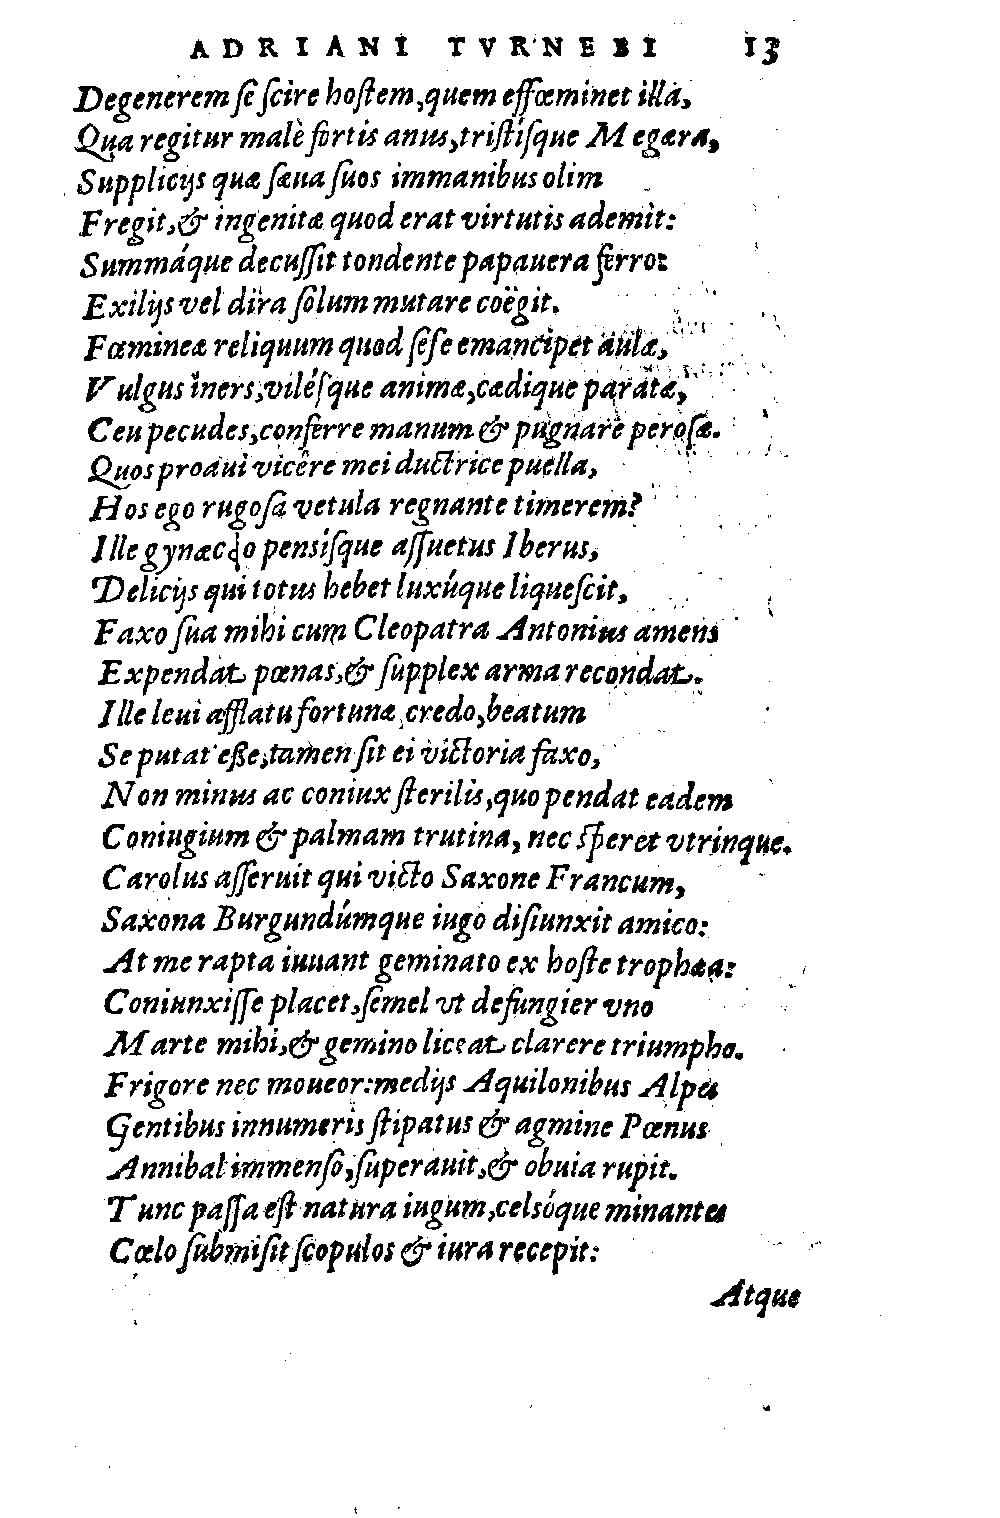 ADRIANI TVRNEBI 13
Degenerem ſe ſcire hoſtem, quem effœminet illa,
Qua regitur malè fortis anus, triſtíſque Megæra,
Supplicijs quæ ſæua ſuos immanibus olim
Fregit, & ingenitæ quod erat virtutis ademit:
Summáque decuſſit tondente papauera ferro:
Exilijs vel dira ſolum mutare coëgit.
Fœmineæ reliquum quod ſeſe emancipet aulæ,
Vulgus iners, viléſque animæ, cædique paratæ,
Ceu pecudes, conferre manum & pugnare peroſæ.
Quos proaui vicêre mei ductrice puella,
Hos ego rugoſa vetula regnante timerem?
Ille gynæcęo penſiſque aſſuetus Iberus,
Delicijs qui totus hebet luxúque liqueſcit,
Faxo ſua mihi cum Cleopatra Antonius amens
Expendat pœnas, & ſupplex arma recondat.
Ille leui afflatu fortunæ credo, beatum
Se putat eſſe, tamen ſit ei victoria faxo,
Non minus ac coniux ſterilis, quo pendat eadem
Coniugium & palmam trutina, nec ſperet vtrinque.
Carolus aſſeruit qui victo Saxone Francum,
Saxona Burgundúmque iugo diſiunxit amico:
At me rapta iuuant geminato ex hoſte trophæa:
Coniunxiſſe placet, ſemel vt defungier vno
Marte mihi, & gemino liceat clarere triumpho.
Frigore nec moueor: medijs Aquilonibus Alpes
Gentibus innumeris ſtipatus & agmine Pœnus
Annibal immenſo, ſuperauit, & obuia rupit.
Tunc paſſa eſt natura iugum, celsóque minantes
Cœlo ſubmiſit ſcopulos & iura recepit:
Atque